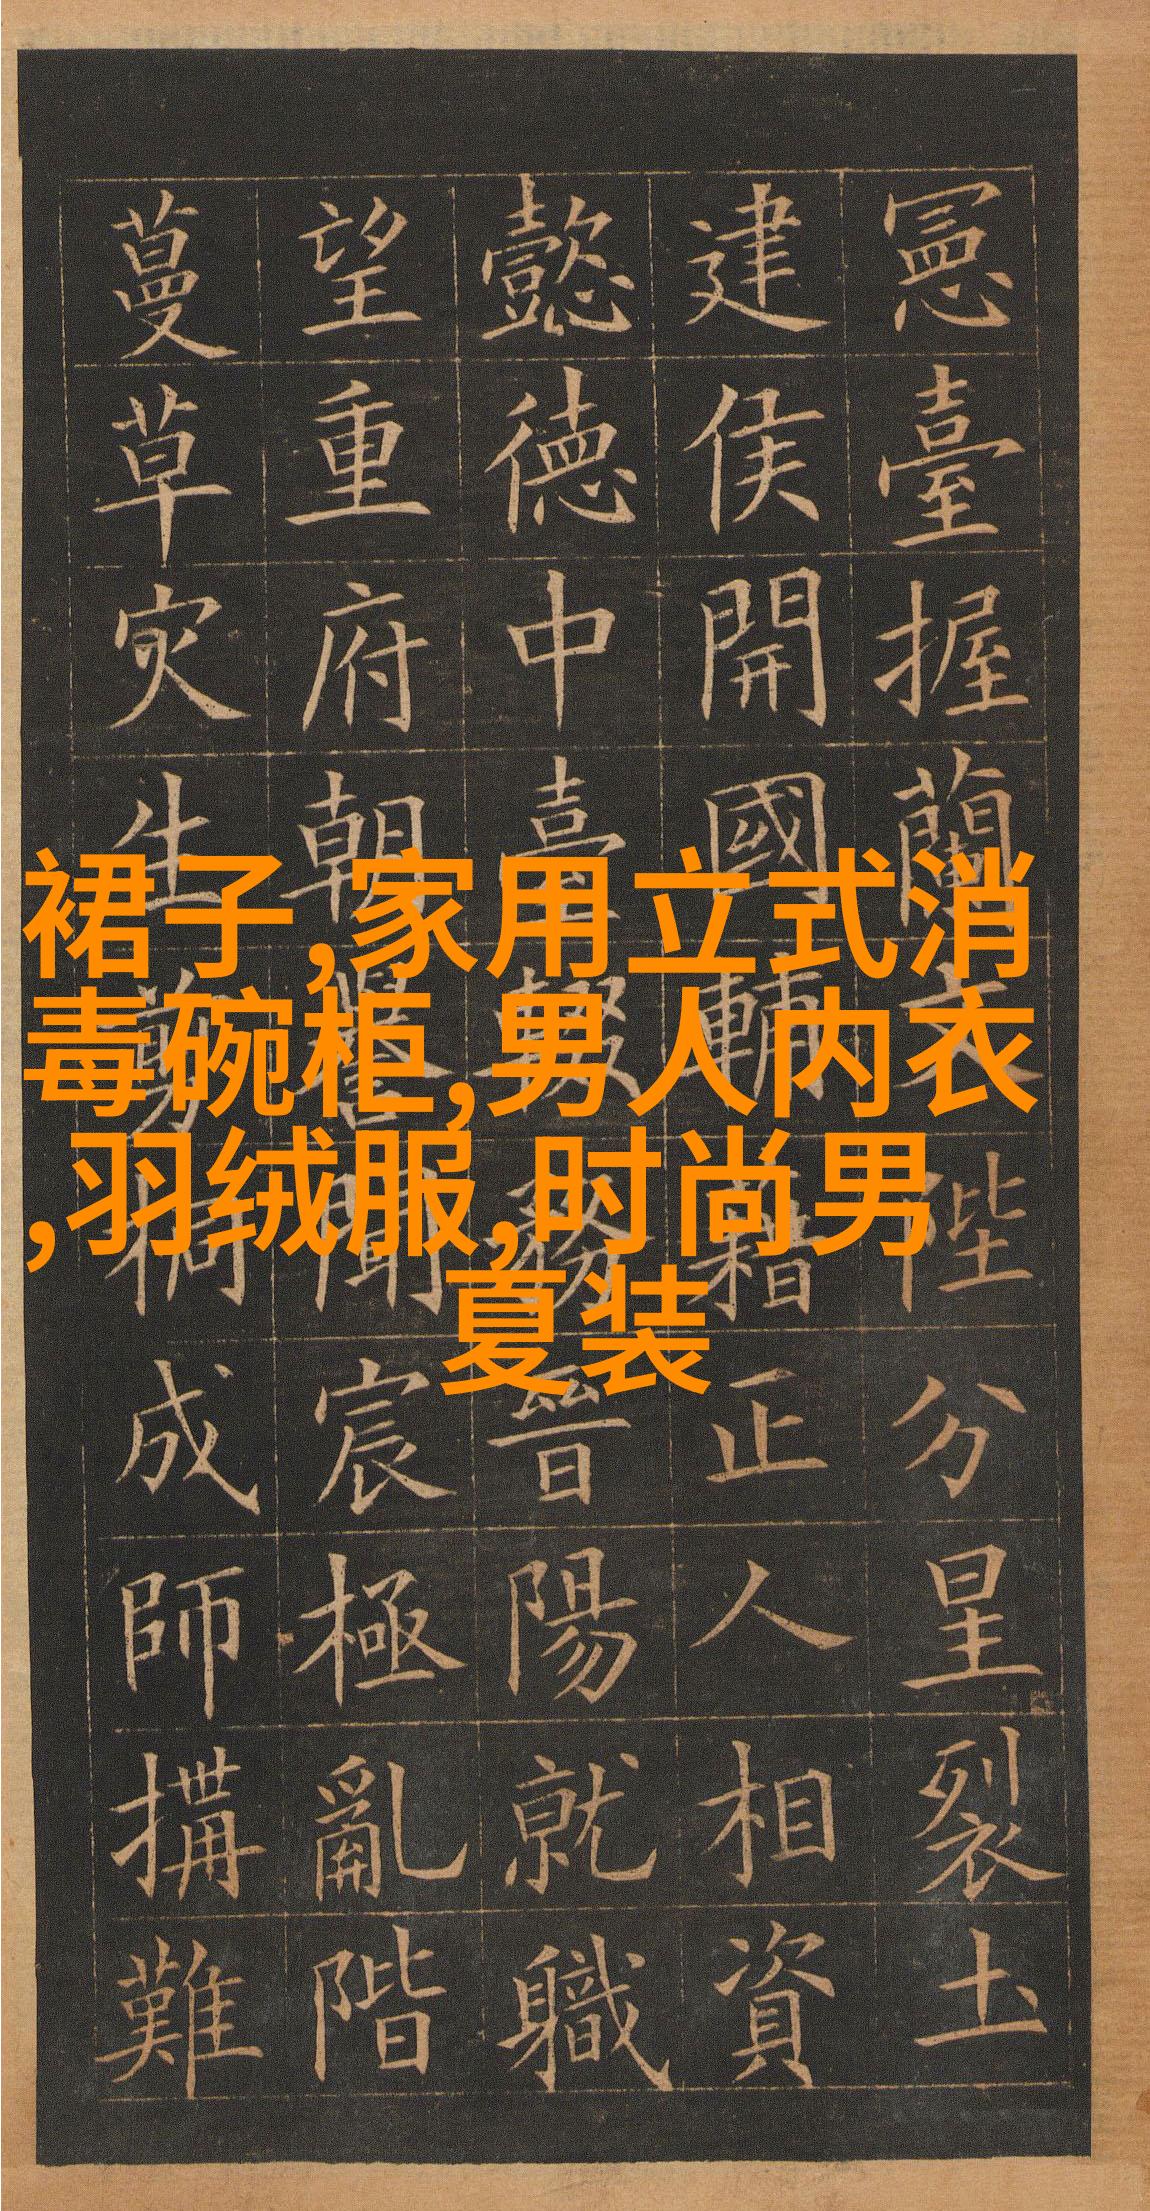 裙子,家用立式消
毒碗柜,男人内衣
,羽绒服,时尚男
夏装
憲臺握蘭文陛分星裂土
建侯開國輔藉正人相資
懿德中臺務晉陽就職
望重府朝譽聞宸極亂階
蔓草灾生剪桐成師搆難